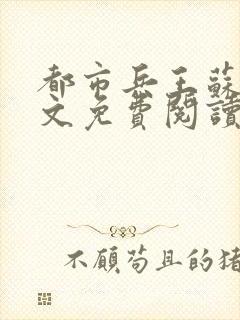 都市兵王蘇
文免費閱讀
不顧苟且的猪